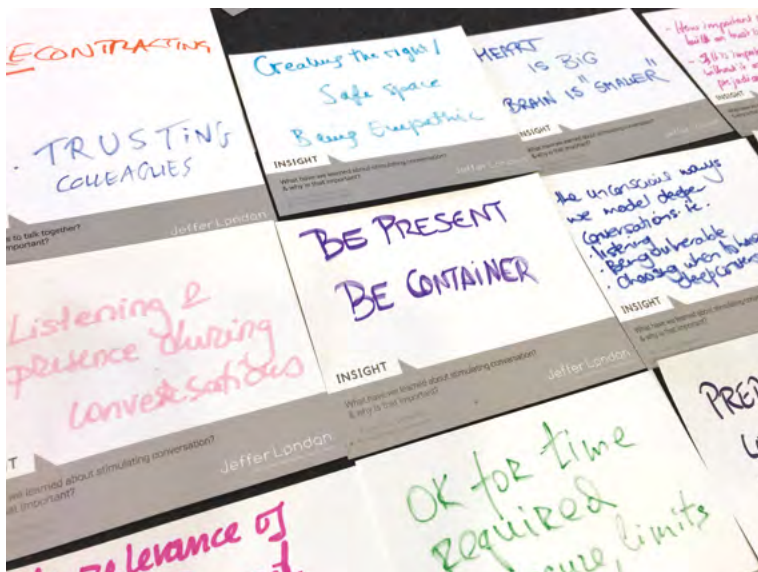 ECONTRACTING
. TRUSTING
COLLEAGUES
e to talk together?
mportant?
Jeffer London
Creating the right /
Safe space
Being Empathic
INSIGHT
What have we learned about stimulating conversation?
& why is that important?
Jeffer London
HEART
IS BIG
BRAIN IS "SMALLER"
INSIGHT
What have we learned about stimulating conversation?
& why is that important?
- How important
built on trust
without it
INSIGHT
Listening &
presence during
conversations
learned about stimulating conversation?
important?
Jeffer London
BE PRESENT
BE CONTAINER
INSIGHT
What have we learned about stimulating conversation?
& why is that important?
Jeffer London
the unconscious ways
we model deeper
conversations. ie.
. listening
. Being vulnerable
. choosing when to have
deep convers
INSIGHT
What have we learned about stimulating
& why is that important?
relevance of
OK for time
required
limits
PREP